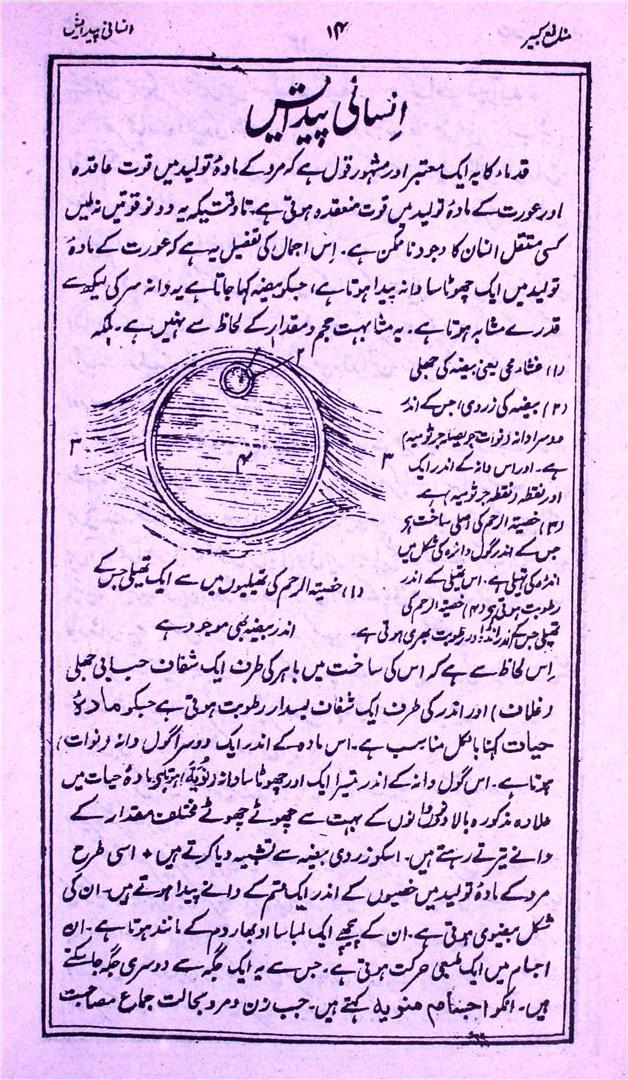 انسانی پیدائش
۱۴
انسانی پیدائش
قدماء کا یہ ایک معتبر اور مشہور قول ہے کہ مرد کے مادۂ تولید میں قوت عاقدہ
اور عورت کے مادۂ تولید میں قوت منعقدہ ہوتی ہے۔ تاوقتیکہ یہ دونو قوتیں نہ ملیں
کسی مستقل انسان کا وجود ناممکن ہے۔ اِس اجمال کی تفصیل یہ ہے کہ عورت کے مادۂ
تولید میں ایک چھوٹا سا دانہ پیدا ہوتا ہے، جسکو بیضہ کہا جاتا ہے یہ دانہ سر کی لیکھ سے
قدرے مشابہ ہوتا ہے۔ یہ مشابہت حجم و مقدار کے لحاظ سے نہیں ہے۔ بلکہ
(۱) غشاء محی یعنی بیضہ کی جھلی
(۲) بیضہ کی زردی (جس کے اندر
دوسرا دانہ (نوات جرثومیہ)
ہے۔ اور اس دانہ کے اندر ایک
اور نقطہ (نقطہ جرثومیہ) ہے
(۳) خصیۃ الرحم کی اصلی ساخت ہے
جس کے اندر گول دائرہ کی شکل میں
انڈہ کی تھیلی ہے۔ اس تھیلی کے اندر
رطوبت ہوتی ہے (۴) خصیۃ الرحم کی
تھیلی جس کے اندر انڈا اور رطوبت بھری ہوتی ہے۔
۲
۳
۴
۳
(۱) خصیۃ الرحم کی تھیلیوں میں سے ایک تھیلی جس کے
اندر بیضہ بھی موجود ہے
اِس لحاظ سے ہے کہ اس کی ساخت میں باہر کی طرف ایک شفاف حبابی جھلی
(غلاف) اور اندر کی طرف ایک شفاف لیسدار رطوبت ہوتی ہے جسکو مادۂ
حیات کہنا بالکل مناسب ہے۔ اس مادہ کے اندر ایک دوسرا گول دانہ (نوات)
ہوتا ہے۔ اس گول دانہ کے اندر تیسرا ایک اور چھوٹا سا دانہ مادۂ حیات میں
علاوہ مذکورہ بالا دونوں دانوں کے بہت سے چھوٹے چھوٹے مختلف مقدار کے
دانے تیرتے رہتے ہیں۔ اسکو زردی بیضہ سے تشبیہ دیا کرتے ہیں ٭ اسی طرح
مرد کے مادۂ تولید میں خصیوں کے اندر ایک قسم کے دانے پیدا ہوتے ہیں۔ ان کی
شکل بیضوی ہوتی ہے۔ ان کے پیچھے ایک لمبا سا اوبھار دم کے مانند ہوتا ہے۔ ان
اجسام میں ایک طبعی حرکت ہوتی ہے۔ جس سے یہ ایک جگہ سے دوسری جگہ جا سکتے
ہیں۔ انکو اجسام منویہ کہتے ہیں۔ جب زن و مرد بحالت جماع مصاحبت